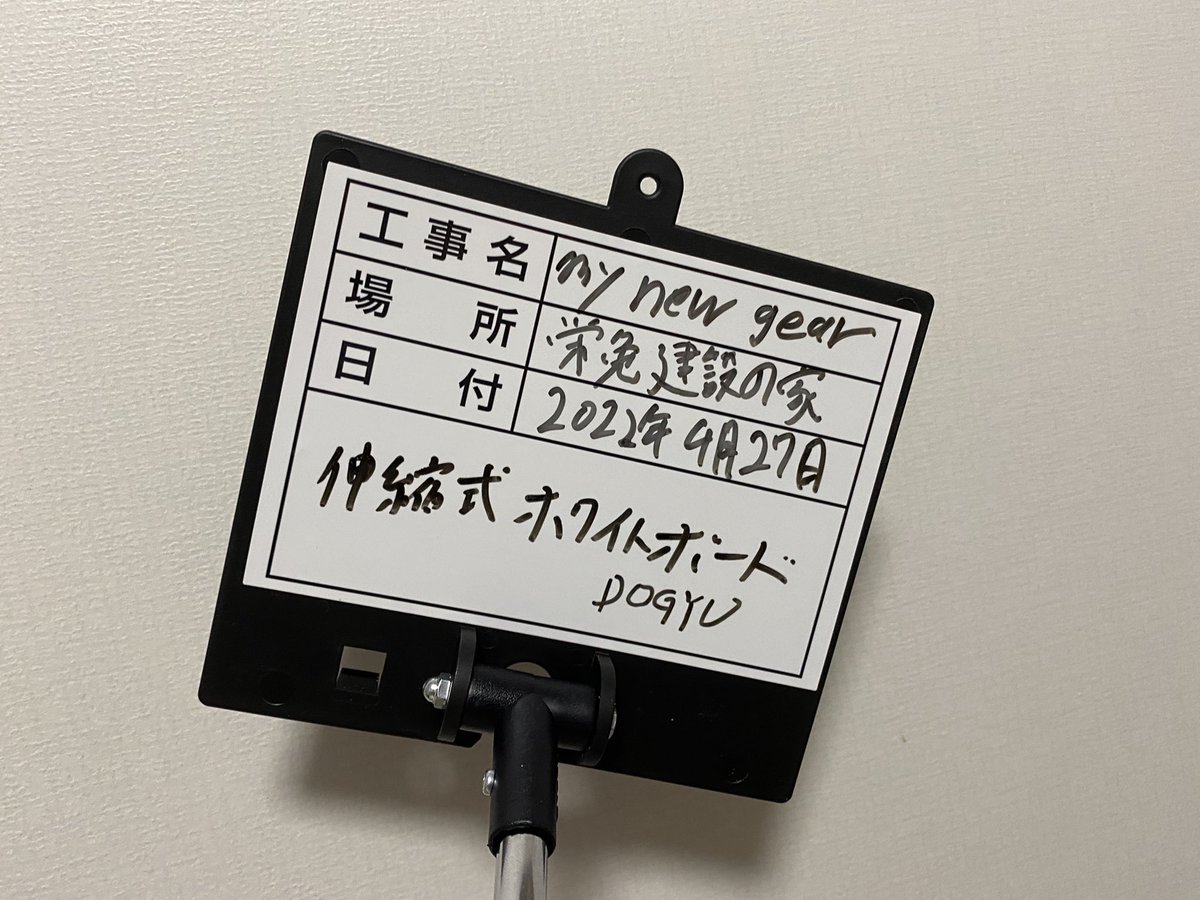 工事名 my new gear
場所 栄免建設の家
日付 2022年4月27日
伸縮式ホワイトボード
DOGYU